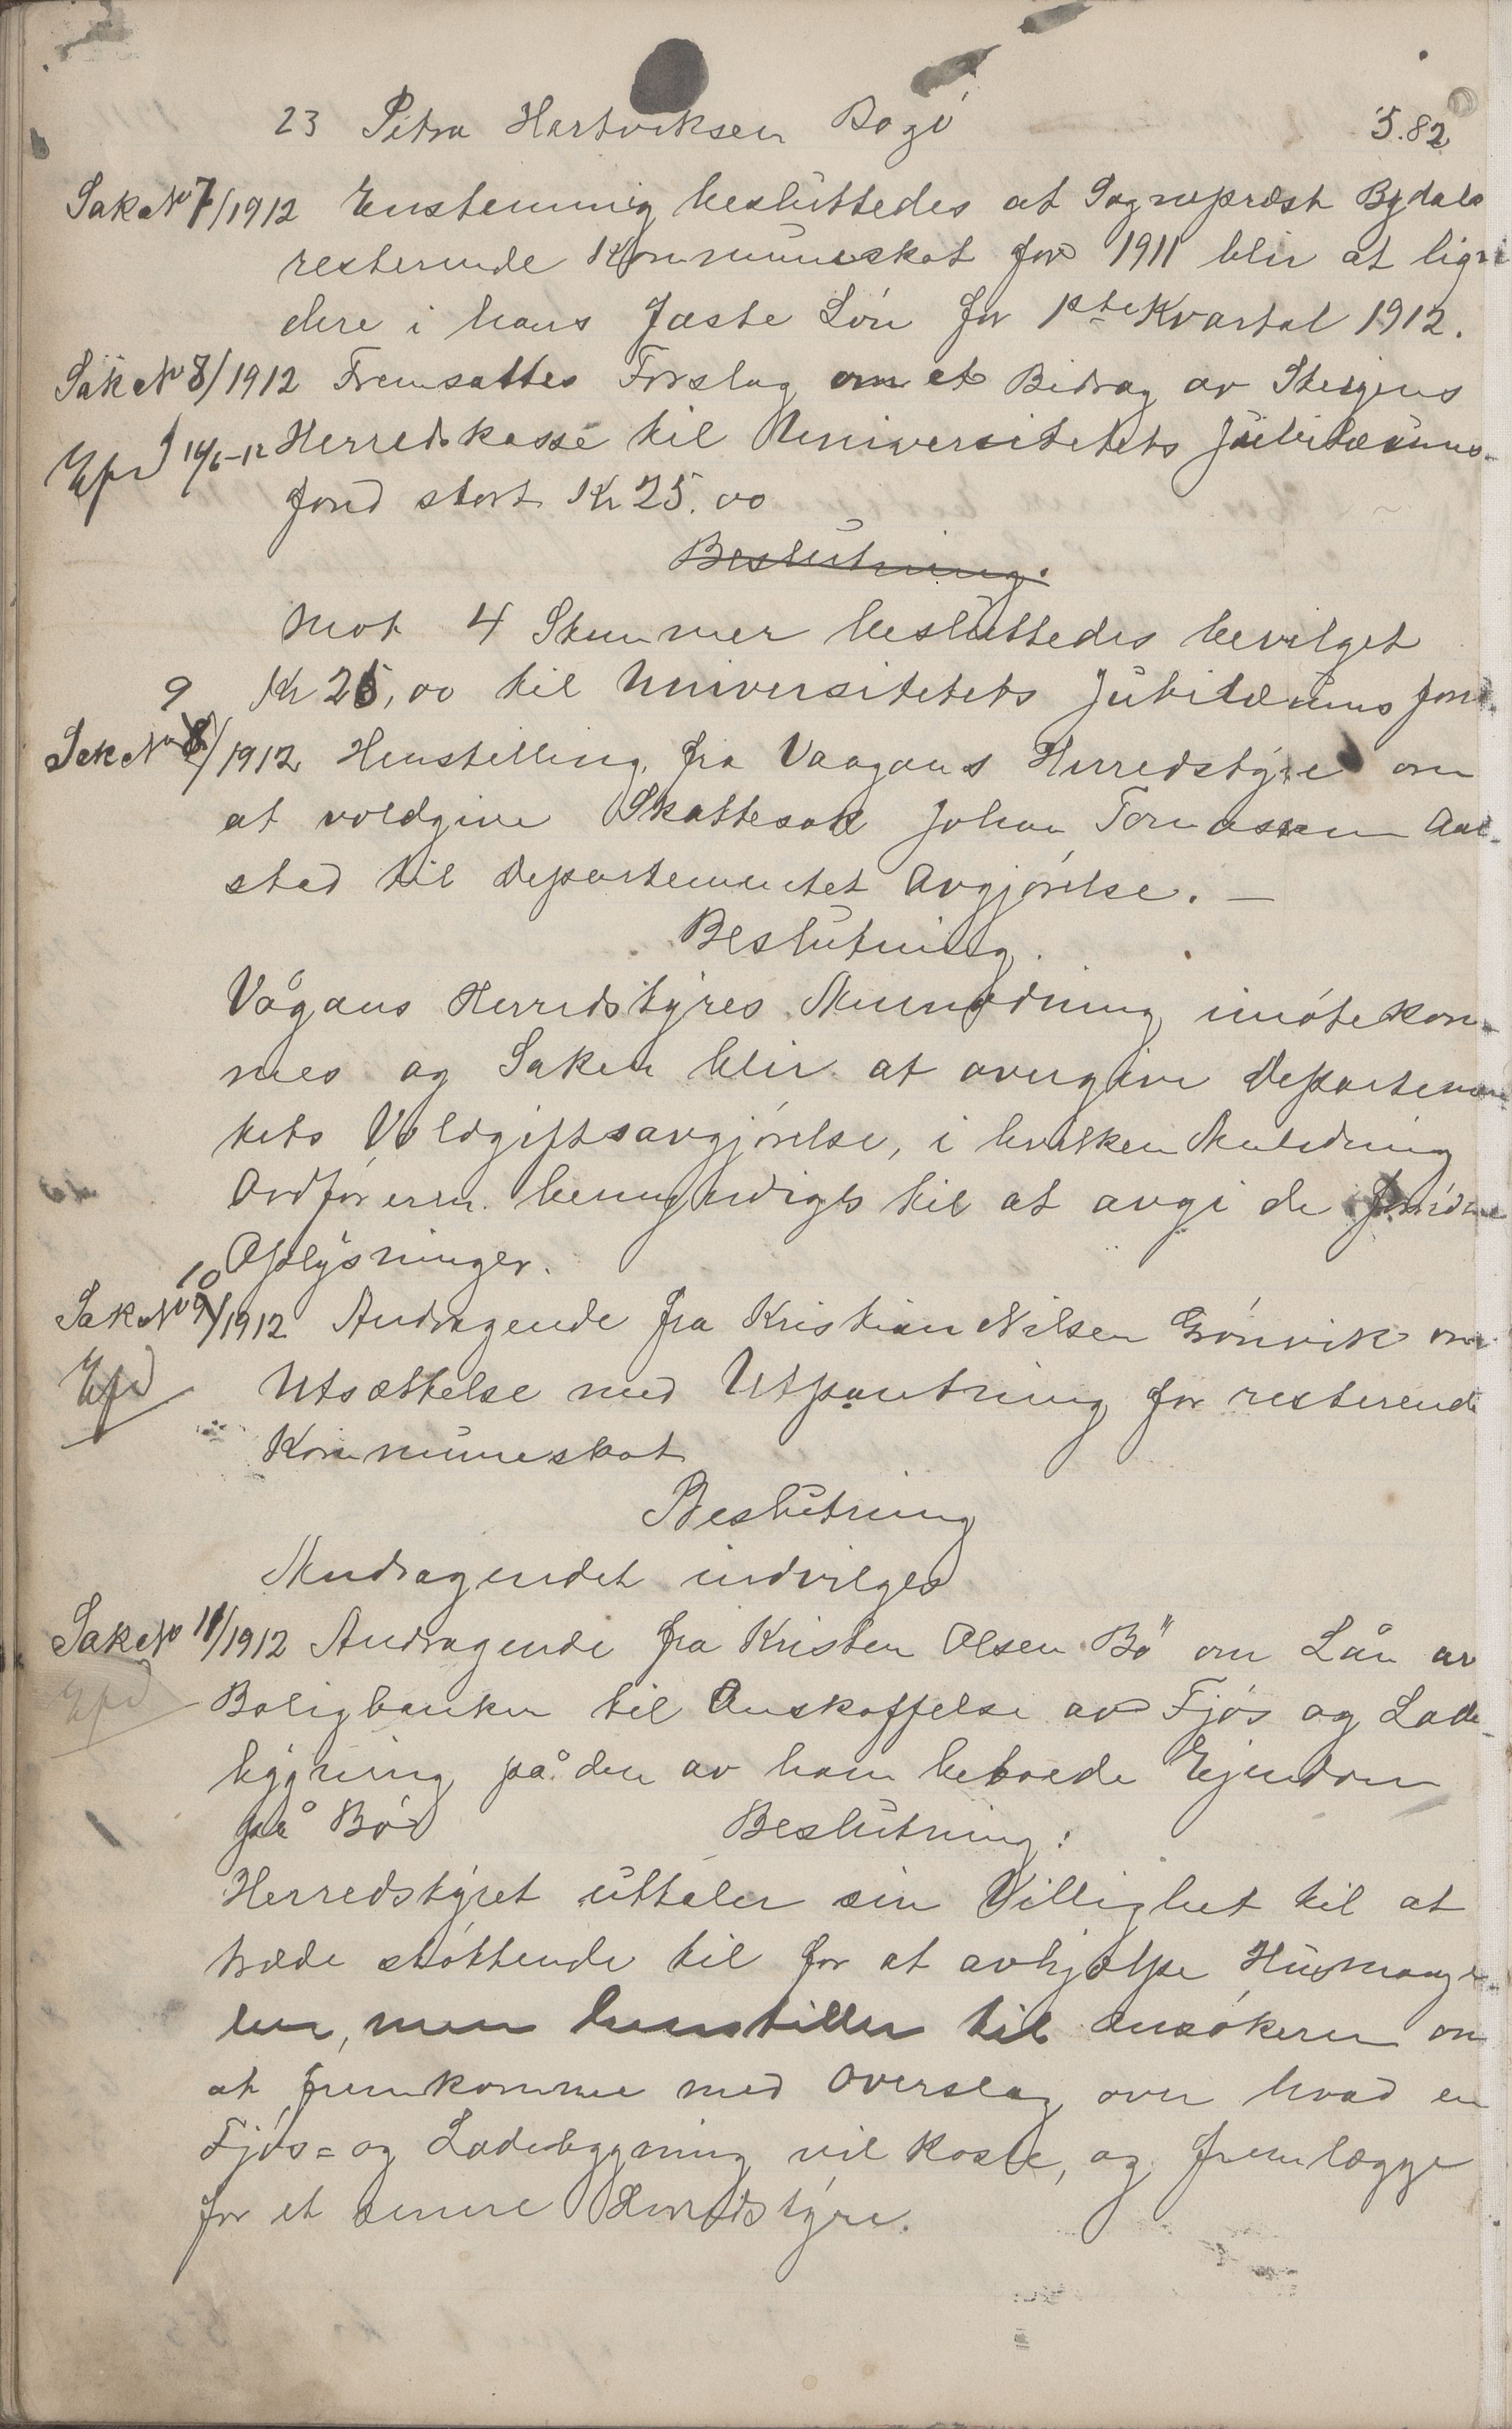 23 Petra Hartviksen Bogö 5.82
Sak No 7/1912 Enstemmig besluttedes at Sogneprest Bydals
resterende Kommuneskat for 1911 blir at ligvi
dere i hans faste Lön for 1ste Kvartal 1912.
Sak No 8/1912 Fremsattes Forslag om et Bidrag av Steigens
Efd 14/6-12 Herredskasse til Universitetets Jubilæums-
fond stort Kr 25.00
Beslutning.
Mot 4 Stemmer besluttedes bevilget
9 Kr 25,00 til Universitetets Jubilæums fond.
Sak No 8/1912 Henstilling fra Vaagans Herredstyre om
at voldgive Skattesak Johan Tomassen Aal-
stad til Departementet Avgjörelse. —
Beslutning.
Vågans Herredstyres Anmodning imötekom-
mes og Saken blir at overgive Departemen
tets Voldgiftsavgjörelse, i hvilken Anledning
Ordföreren bemyndiges til at avgi de fornödne
Oplysninger.
10
Sak No 9/1912 Andragende fra Kristian Nilsen Grönvik om
Efd Utsættelse med Utpantning for resterende
Kommuneskat
Beslutning
Andragendet indvilges
Sak No 11/1912 Andragende fra Kristen Olsen Bö om Lån av
Efd Boligbanken til Anskaffelse av Fjös og Lade-
bygning på den av ham beboede Ejendom
på Bö Beslutning:
Herredstyret uttaler sin Villighet til at
træde stöttende til for at avhjælpe Husmange-
len, men henstiller til Ansökeren om
at fremkomme med Overslag over hvad en
Fjös= og Ladebygning vil koste, og fremlægge
for et senere Herredstyre.